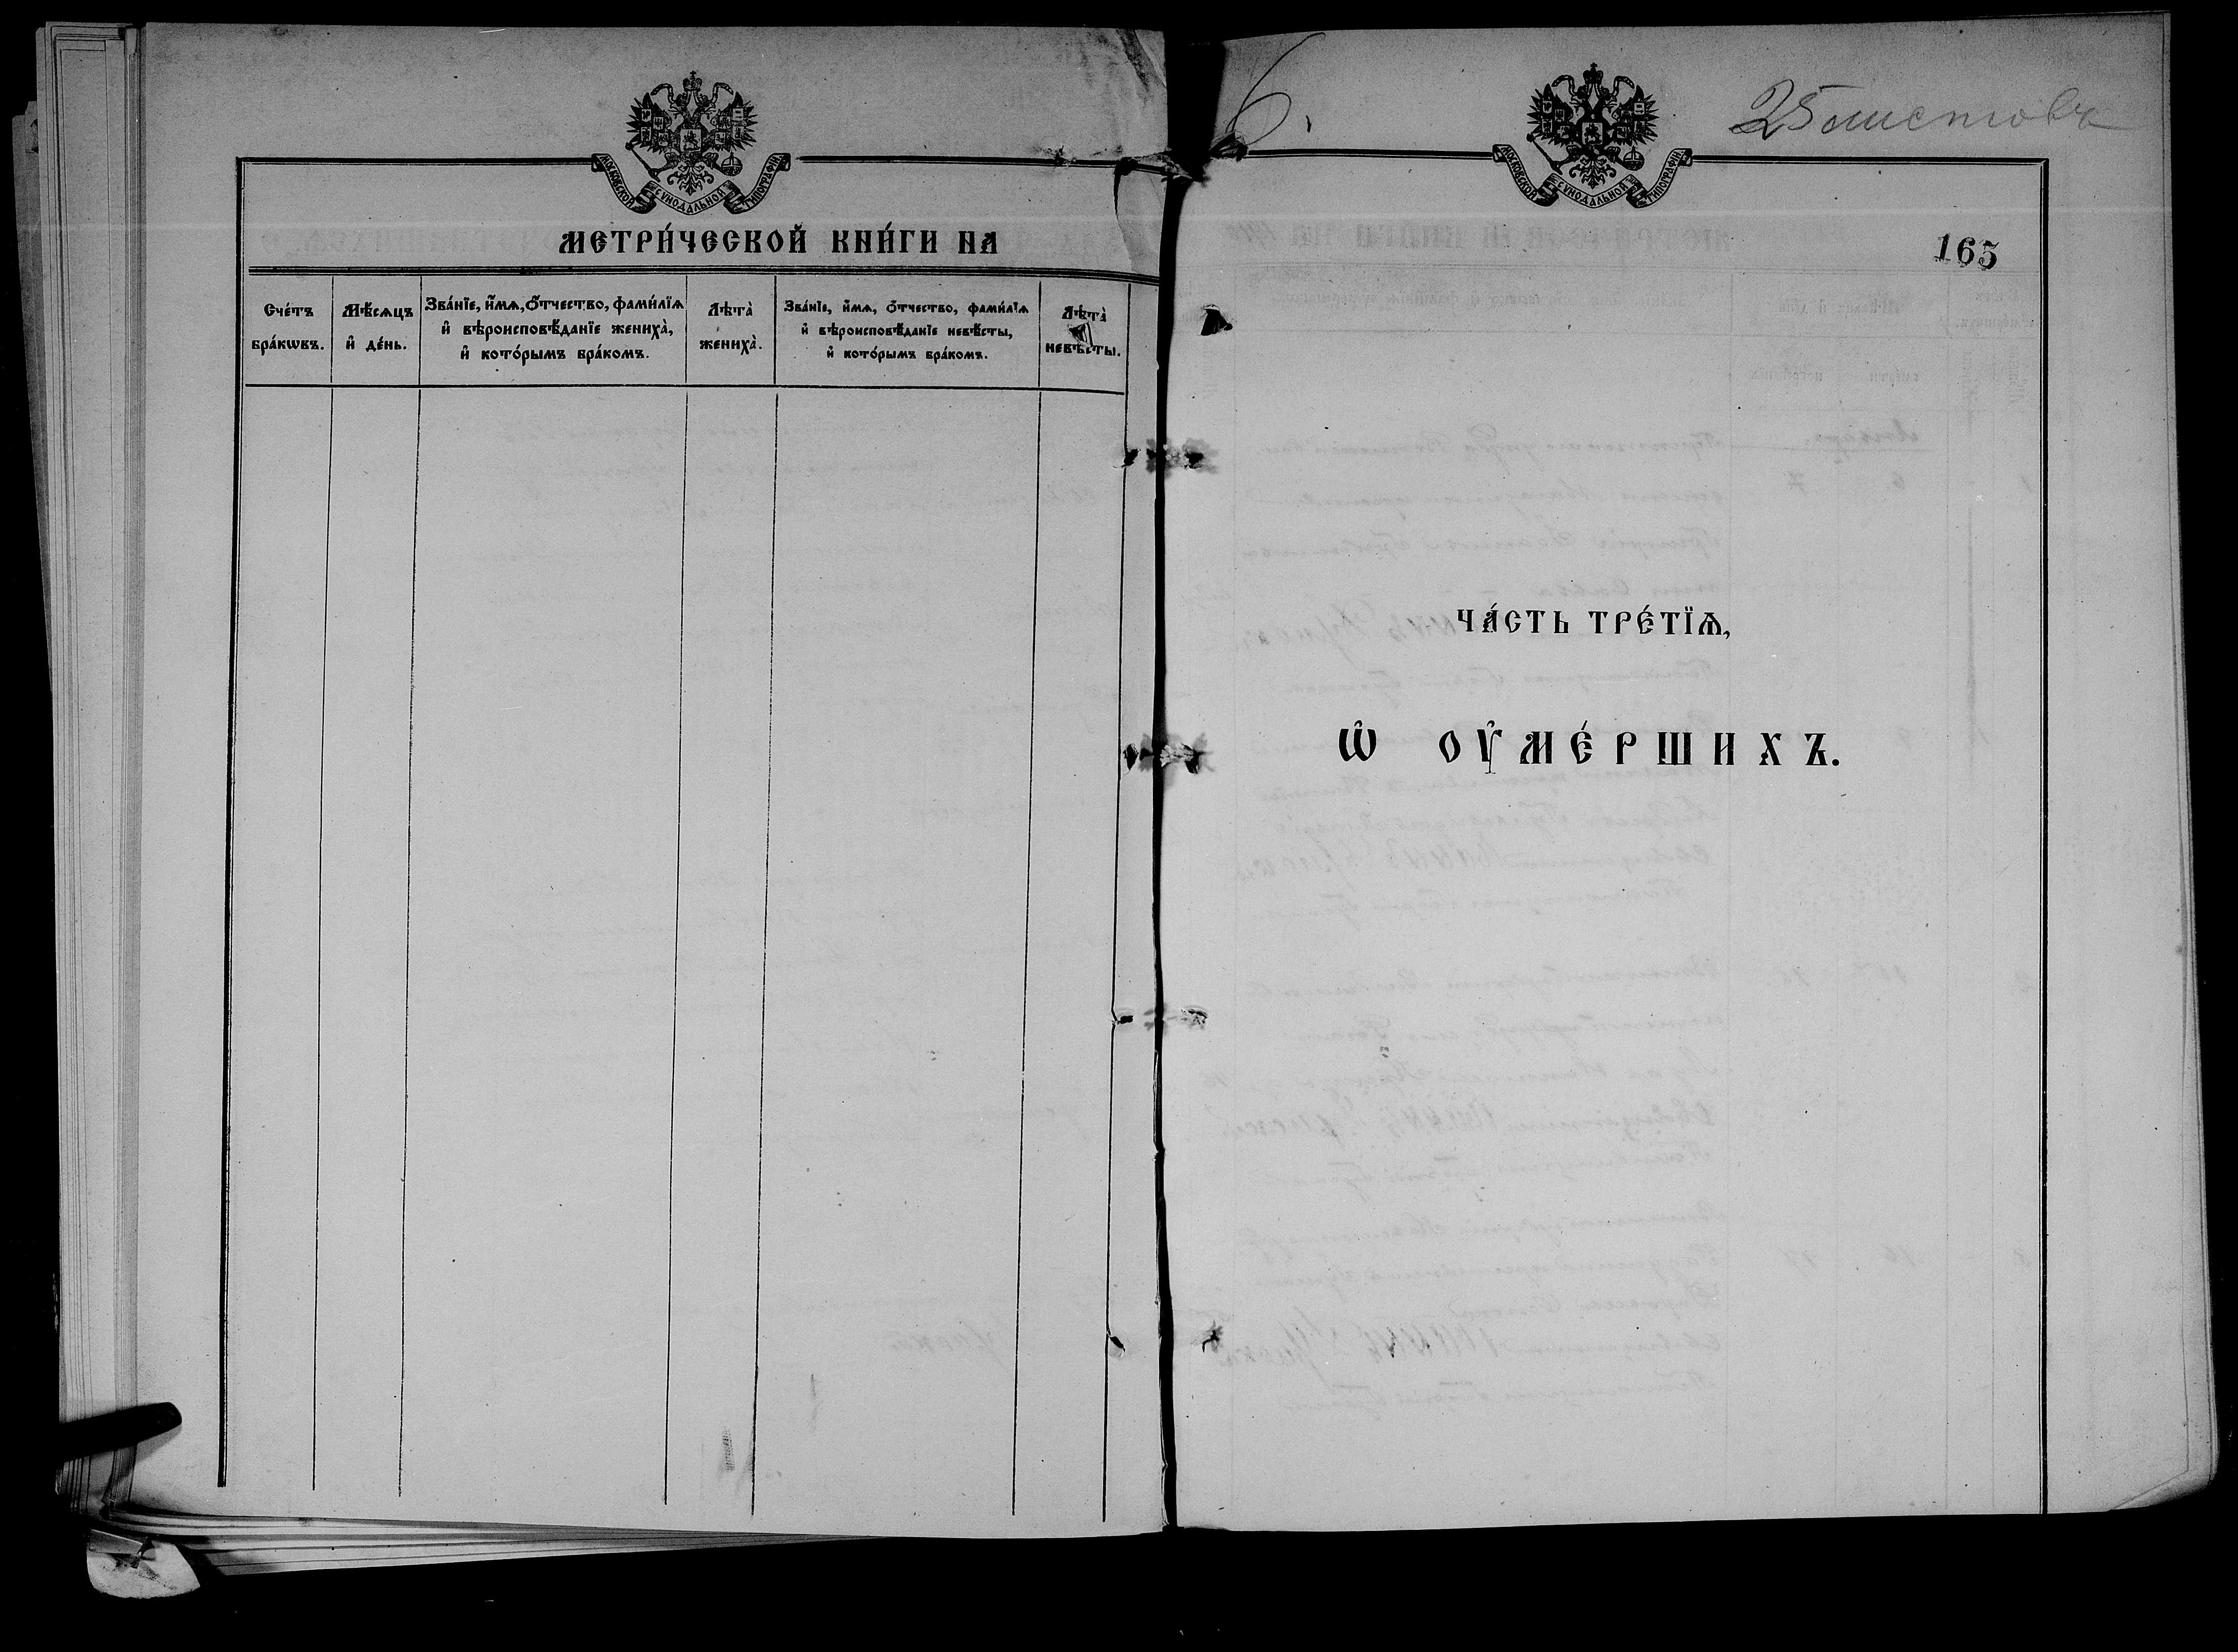 МОСКОВСКОЙ СѴНОДАЛЬНОЙ ТИПОГРАФІИ
МЕТРИ́ЧЕСКОЙ КНИ́ГИ НА
Сче́тъ
бра́кѡвъ.
Мѣ́сѧцъ
и҆ де́нь.
Зва́нїе, и҆́мѧ, ѻ҆́тчество, фами́лїѧ
и҆ вѣроисповѣ́данїе жениха̀,
и҆ кото́рымъ бра́комъ.
Лѣта̀
жениха̀.
Зва́нїе, и҆́мѧ, ѻ҆́тчество, фами́лїѧ
и҆ вѣроисповѣ́данїе невѣ́сты,
и҆ кото́рымъ бра́комъ.
Лѣта̀
невѣ́сты.
6.
МОСКОВСКОЙ СѴНОДАЛЬНОЙ ТИПОГРАФІИ
25 листовъ
165
ЧА́СТЬ ТРЕ́ТЇѦ,
Ѡ҆ ОУ҆МЕ́РШИХЪ.